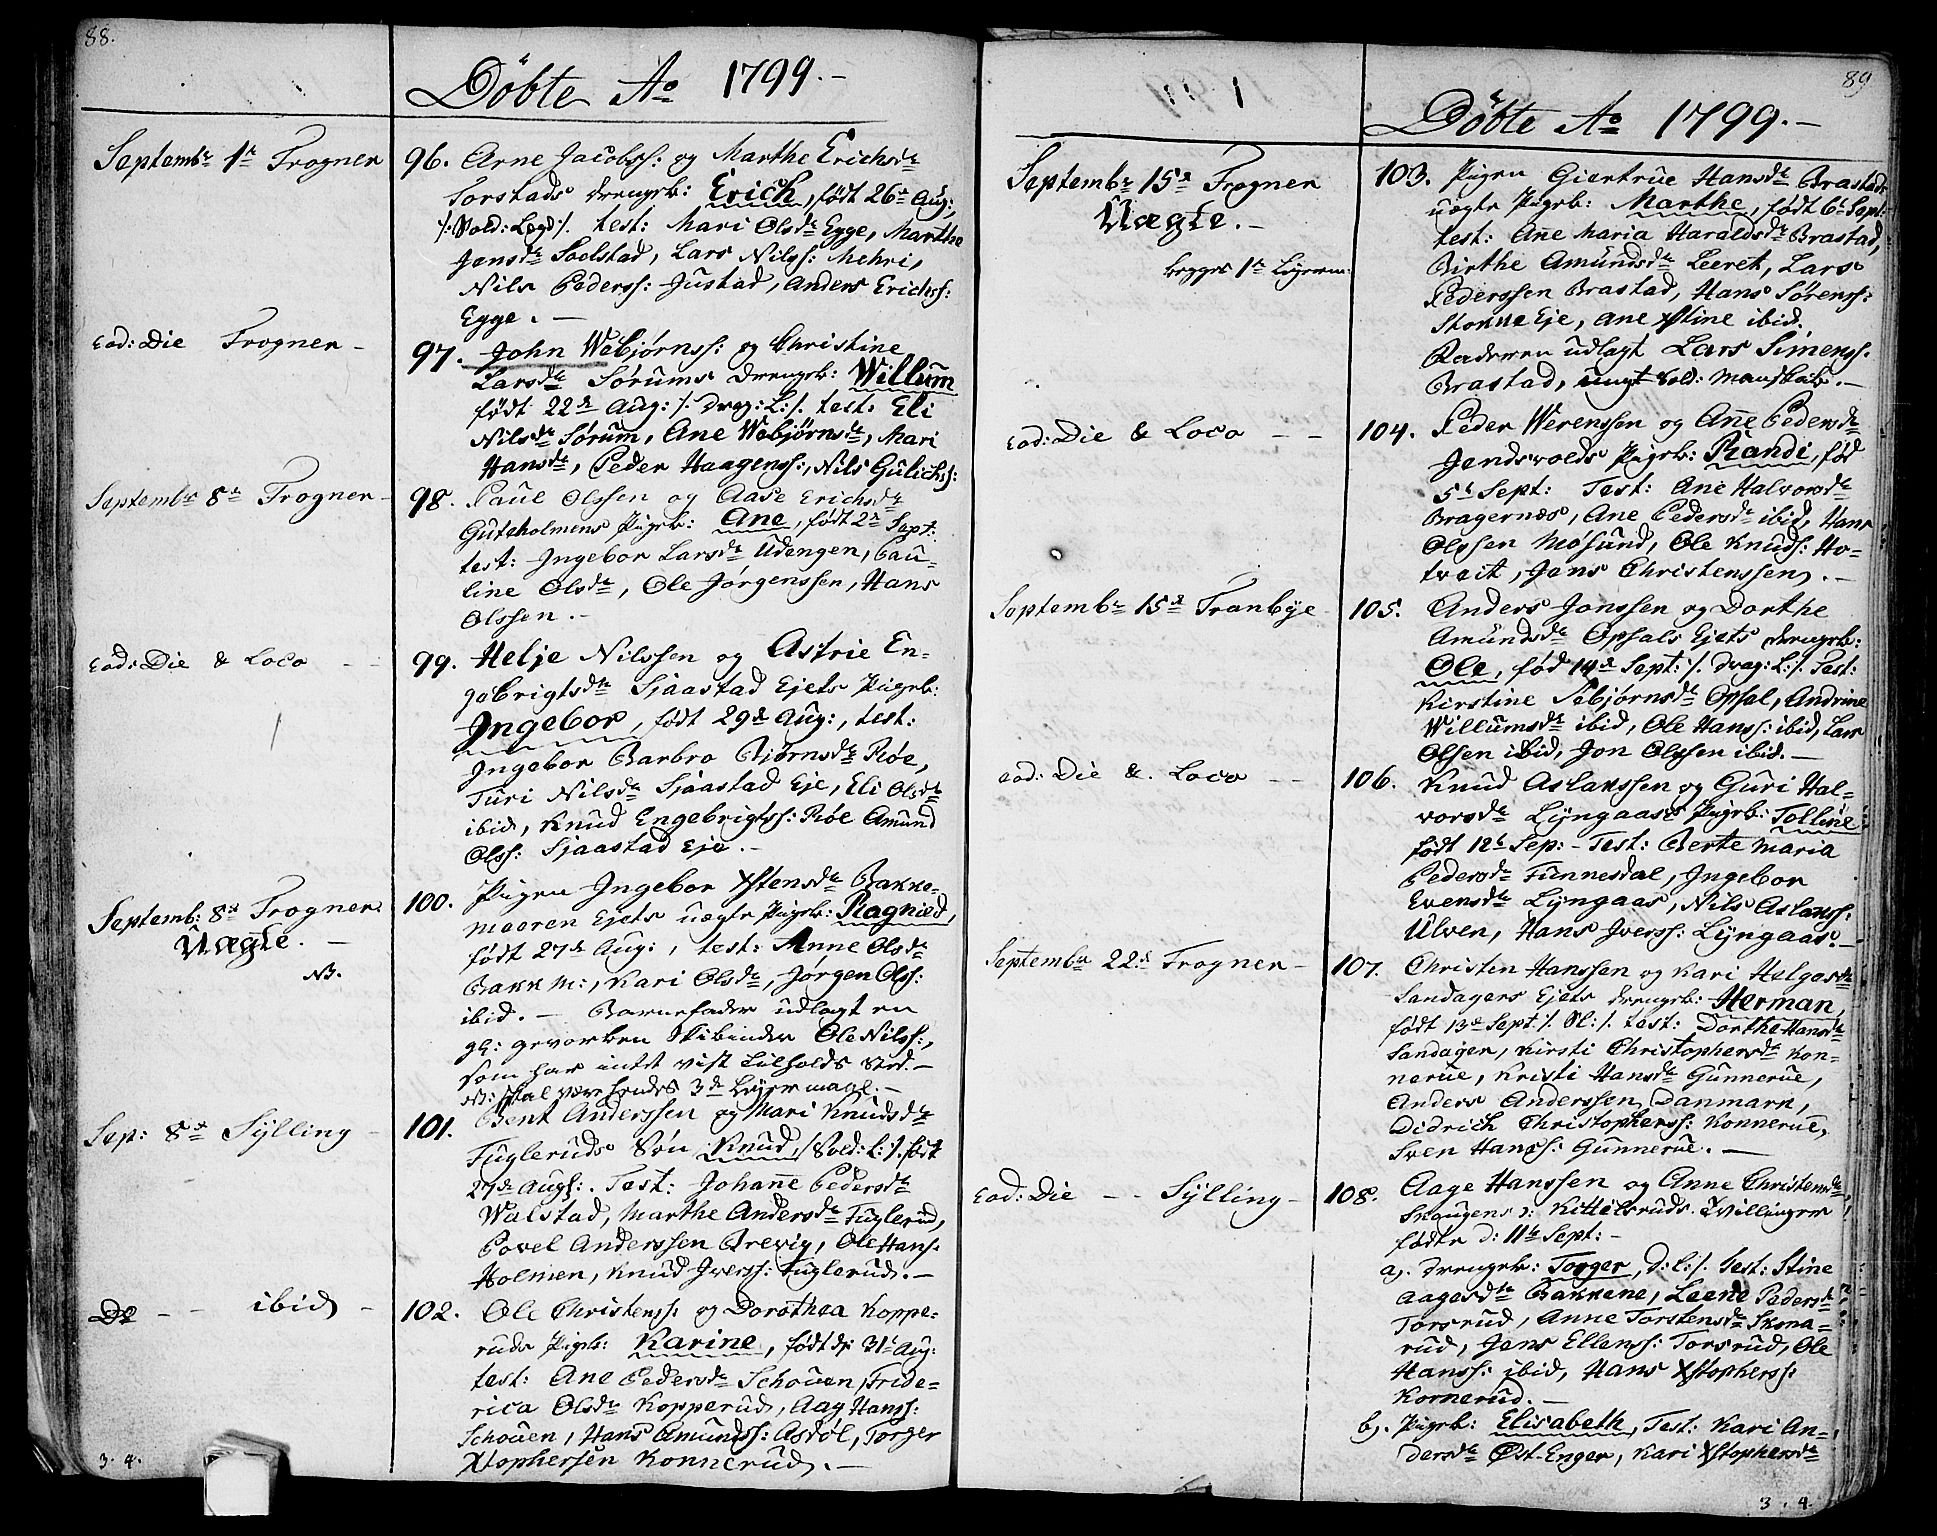 88.
Döbte Ao 1799.-
Septembr 1ste Frogner
96. Arne Jacobss: og Marthe Erichsdtr
Torstads drengb: Erich, født 26de Aug:,
/: Sold: Legd:/. test: Mari Olsdtr Egge, Marthe
Jensdtr Soolstad, Lars Nilss: Mehri,
Nils Pederss: Justad, Anders Erichss:
Egge. -
Eod: Die Frogner -
97. John Webjørnss: og Christine
Larsdtr Sørums drengb: Willum
født 22de Aug: /. Drag: L: /. test: Eli
Nilsdtr Sørum, Ane Webjørnsdtr, Mari
Hansdtr, Peder Haagenss:, Nils Gulichss:
Septembr 8de Frogner -
98. Paul Olssen og Aase Erichsdtr
Guteholmens Pigeb: Ane, født 2de Sept:
test: Ingebor Larsdtr Udengen, Pau-
line Olsdtr, Ole Jørgenssen, Hans
Olssen. -
Eod: Die & Loco - -
99. Helje Nilssen og Astrie En-
gebrigtsdtr Sjaastad Ejets Pigeb:
Ingebor, født 29de Aug:, test:
Ingebor Barbro Bjørnsdtr Røe,
Turi Nilsdtr Sjaastad Eje, Eli Olsdtr
ibid, Knud Engebrigtss: Røe Amund
Olss: Sjaastad Eje. -
Septemb: 8de Frogner.
Uægte. -
NB.
100. Pigen Ingebor Xstensdtr Bakke-
moeren Ejets uægte Pigeb: Ragnild,
født 27de Aug:, test: Anne Olsdtr
Bakkm:, Kari Olsdtr, Jørgen Olss:
ibid. - Barnefader udlagt en
gl: gevorben Skibinder Ole Nilss:,
som har intet vist Tilholds Sted. -
NB: skal være hendes 3de Leyermaal. -
Sep: 8de Sylling -
101. Bent Anderssen og Mari Knudsdtr
Fugleruds Søn Knud, /Sold: L: /. født
27de Augs:. Test: Johanne Pedersdtr
Walstad, Marthe Andersdtr Fuglerud,
Povel Anderssen Brevig, Ole Hans:
Holmen, Knud Iverss: Fuglerud. -
Do - - ibid -
102. Ole Christenss: og Dorothea Koppe-
ruds Pigeb: Karine, født d: 31te Aug:
test: Ane Pedersdtr Schouen, Fride-
rica Olsdtr Kopperud, Aag Hanss:
Schouen, Hans Amundss: Asdøl, Torger
Xstophersen Konnerud. -
3. 4.
89
Döbte Ao 1799.-
Septembr 15de Frogner
Uægte. -
begges 1ste Lejerm:
103. Pigen Giertrue Hansdtr Brastads
uægte Pigeb: Marthe, født 6te Sept:
test: Ane Maria Haraldsdtr Brastad,
Birthe Amundsdtr Leeret, Lars
Pederssen Brastad, Hans Sørenss:
Stokke Eje, Ane Xstine ibid,
Faderen udlagt Lars Simenss:
Brastad, ungt Sold: Mandskab. -
Eod: Die & Loco - -
104. Peder Werenssen og Anne Pedersdtr
Jendsvolds Pigeb: Randi, fød
5te Sept: Test: Ane Halvorsdtr
Bragernæs, Ane Pedersdtr ibid, Hans
Olssen Møsund, Ole Knuds: Ho-
tveit, Jens Christenssen. -
Septembr 15de Tranbye
105. Anders Jonssen og Dorthe
Amundsdtr Opsals Ejets drengb:
Ole, fød 14de Sept: /. Drag: L: /. Test:
Kirstine Tebjørnsdtr Opsal, Andrine
Willumsdtr ibid, Ole Hanss: ibid, Lars
Olsen ibid, Jon Olssen ibid. -
Eod: Die &. Loco - -
106. Knud Aslakssen og Guri Hal-
vorsdtr Lyngaass Pigeb: Talline
født 12te Sep: - Test: Berte Maria
Pedersdtr Tunnesdal, Ingebor
Evensdtr Lyngaas, Nils Aslakss:
Ulven, Hans Iverss: Lyngaas. -
Septembr 22de Frogner -
107. Christen Hanssen og Kari Helgesdtr
Landagers Ejets drengb: Herman,
født 13de Sept: /. Sl: /. test: Dorthe Hansdtr
Landager, Kirsti Christophersdtr Kon-
nerue, Kristi Hansdtr Gunnerue,
Anders Anderssen Danmark,
Didrich Christopherss: Konnerue,
Sven Hanss: Gunnerue. -
Eod: Die - - Sylling -
108. Aage Hanssen og Anne Christensdtr
Skougens ɔ: Kittelsruds Tvillinger
fødte d: 11te Sept: -
a). drengeb: Torger, d: l: /. test: Stine
Aagesdtr Bakkene, Leene Pedersdtr
Torsrud, Anne Torstensdtr Skona-
rud, Jens Ellenss: Torsrud, Ole
Hanss: ibid, Hans Xstopherss:
Kornerud. -
b). Pigeb: Elisabeth, Test: Kari An-
dersdtr Øst-Enger, Kari Xstophersdtr
3. 4.